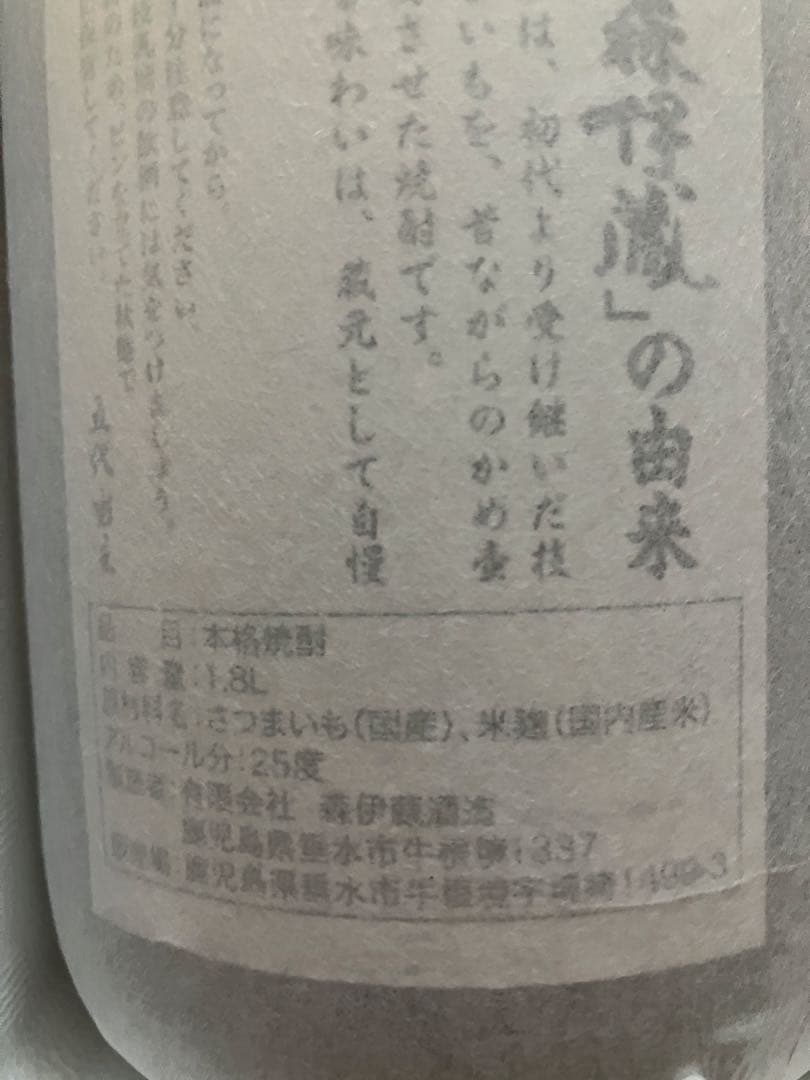 森伊蔵」の由来
は、初代より受け継いだ技
いもを、昔ながらのかめ壷
させた焼酎です。
味わいは、蔵元として自慢
になってから、
分注意してください。
の飲酒には気をつけましょう。
のため、ビンを立てた状態で
してください。
品 目:本格焼酎
内容量:1.8L
原材料名:さつまいも(国産)、米麹(国内産米)
アルコール分:25度
製造者:有限会社 森伊蔵酒造
鹿児島県垂水市牛根麓1337
鹿児島県垂水市牛根麓字磯脇1499-3